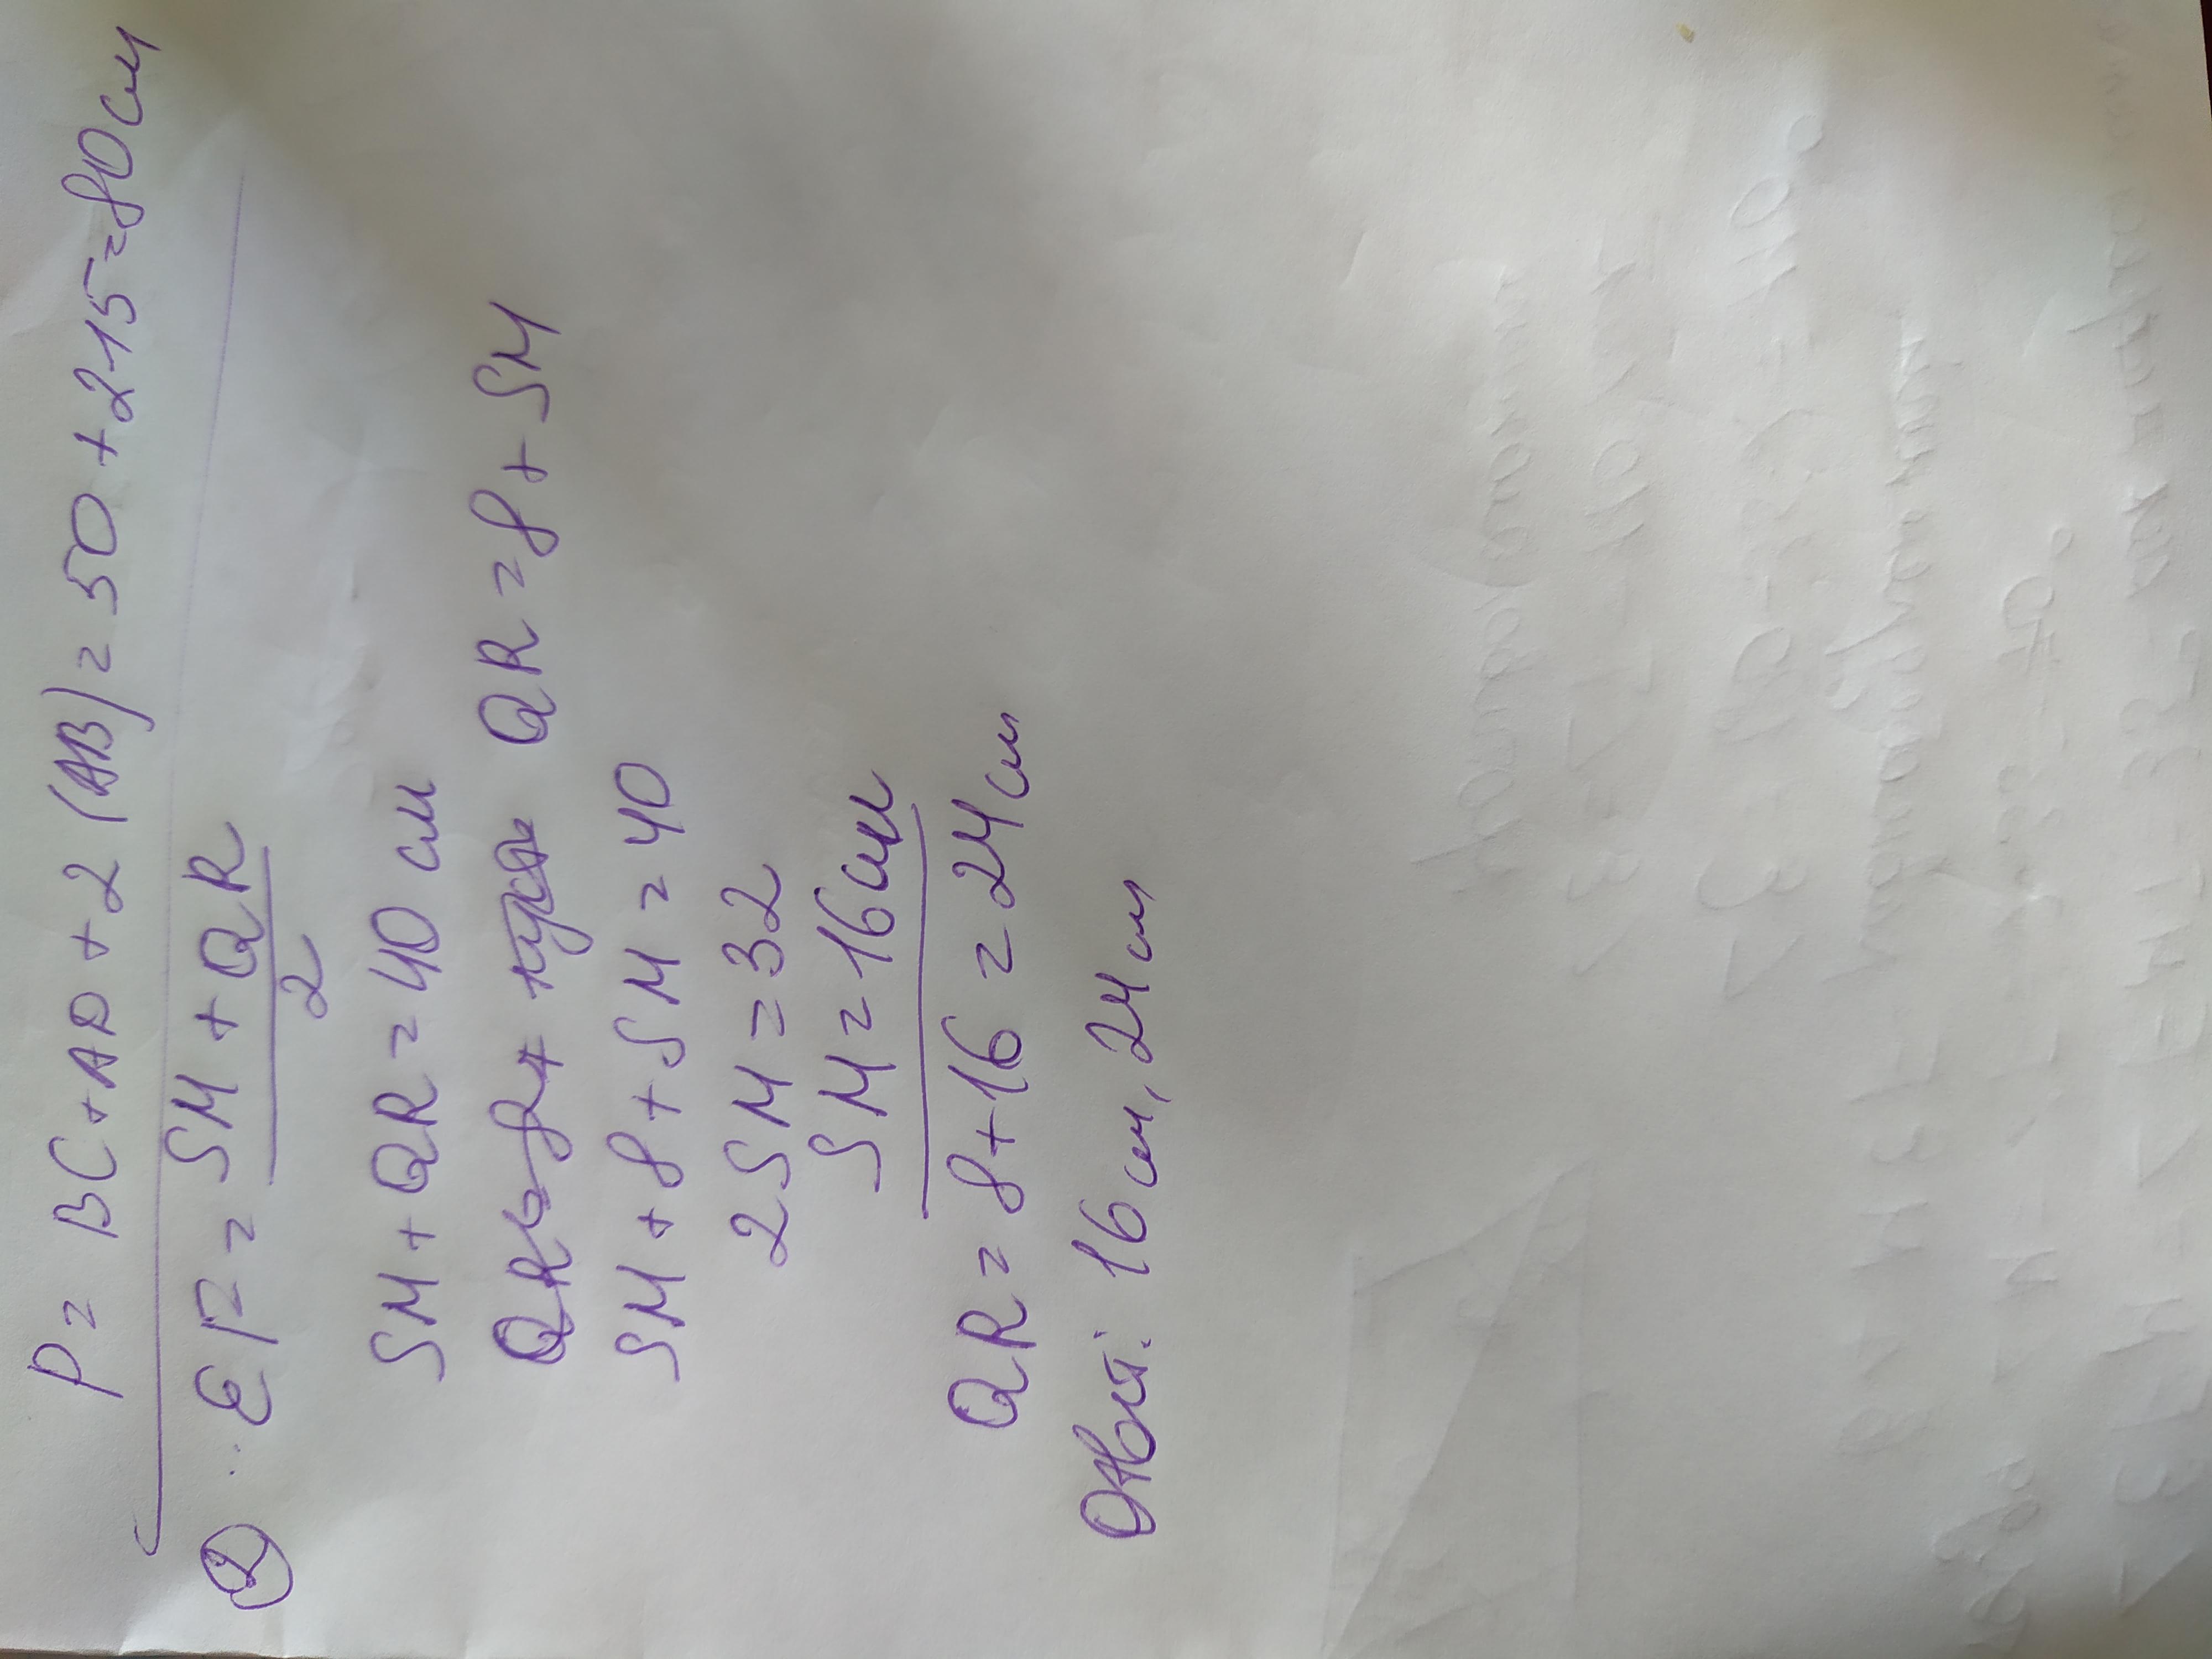 P = BC + AD + 2 (AB) = 50 + 2·15 = 80 см
② EF = (SM + QR) / 2
SM + QR = 40 см
QR = 8 + SM
SM + 8 + SM = 40
2SM = 32
SM = 16 см
QR = 8 + 16 = 24 см
Ответ: 16 см, 24 см